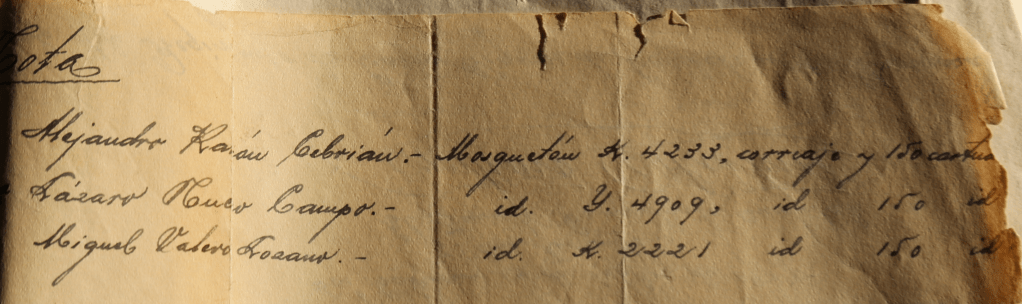 Nota
Alejandro Ramón Cebrián.- Mosquetón K. 4233, correaje y 150 cartuc
Lázaro Campo.- id. Y. 4909, id 150 id
Miguel Valero Lozano.- id. K. 2221 id 150 id